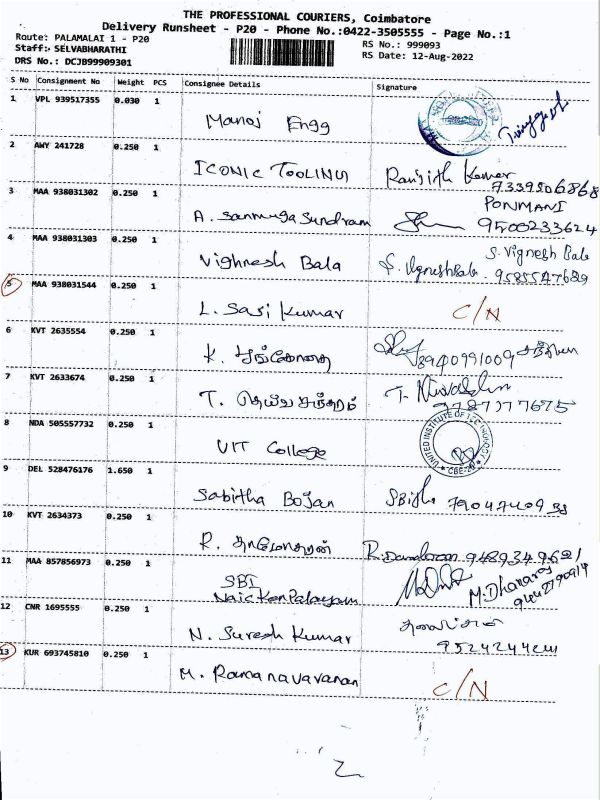 THE PROFESSIONAL COURIERS, Coimbatore
Delivery Runsheet - P20 - Phone No.:0422-3505555 - Page No.:1
Route: PALAMALAI 1 - P20 RS No.: 999093
Staff: SELVABHARATHI RS Date: 12-Aug-2022
DRS No.: DCJB99909301
S No Consignment No Weight PCS Consignee Details Signature
1 VPL 939517355 0.030 1 Manoj Engg
2 AWY 241728 0.250 1 ICONIC TOOLING Ranjith Kumar
7339506868
3 MAA 938031302 0.250 1 A. Sanmuga Sundram PONMANI
9500233624
4 MAA 938031303 0.250 1 Vighnesh Bala S. Vignesh Bala
S. Vigneshbala
5 MAA 938031544 0.250 1 L. Sasi Kumar C/N
6 KVT 2635554 0.250 1 K. 8940991009
7 KVT 2633674 0.250 1 T. தெய்வசுந்தரம் T.
9787177675
8 NDA 505557732 0.250 1 UIT College UNITED INSTITUTE OF TECHNOLOGY
CBE-20
9 DEL 528476176 1.650 1 Sabitha Bojan
10 KVT 2634373 0.250 1 R. தாமோதரன் 9489349621
11 MAA 857856973 0.250 1 SBI
Naicken Palayam M. Dhanaraj
12 CNR 1695555 0.250 1 N. Suresh Kumar
13 KUR 693745810 0.250 1 M. Ramanavaranan C/N